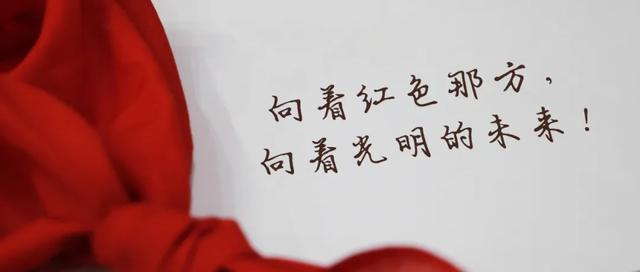 向着红色那方，
向着光明的未来！